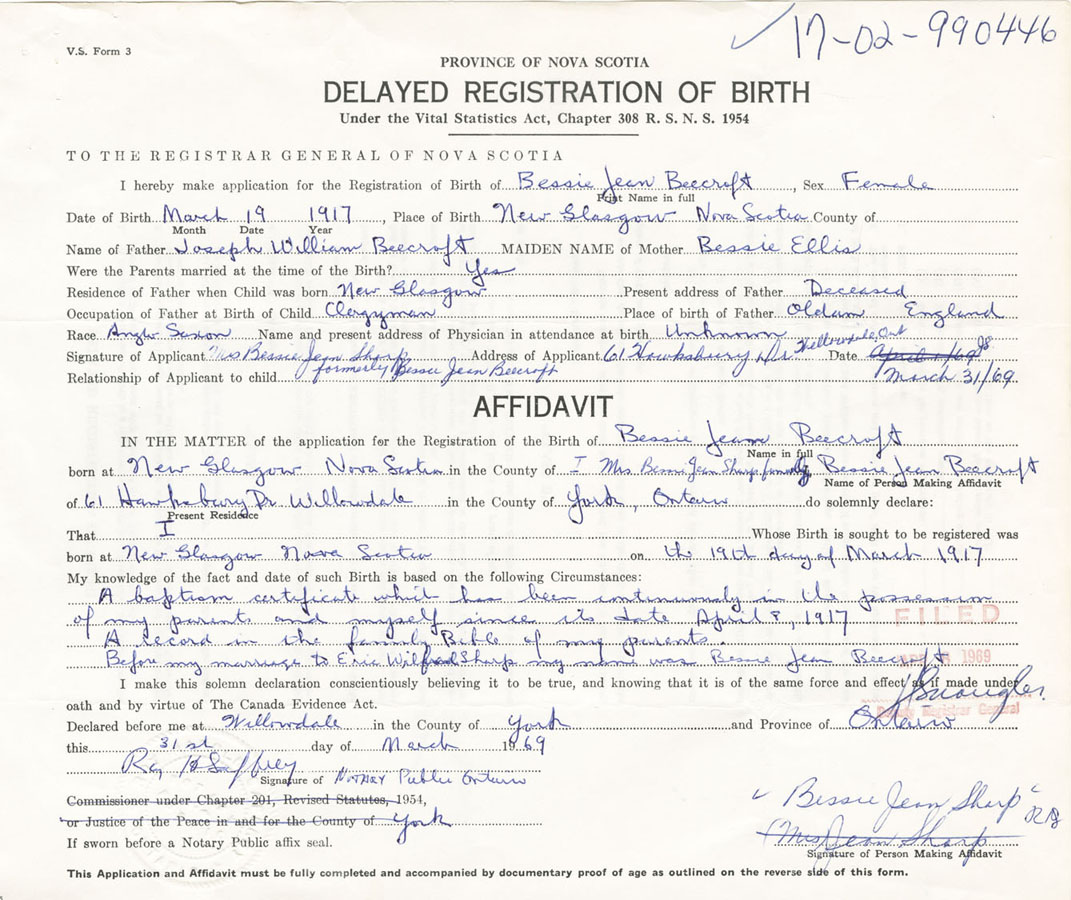 17-02-990446
V.S. Form 3
PROVINCE OF NOVA SCOTIA
DELAYED REGISTRATION OF BIRTH
Under the Vital Statistics Act, Chapter 308 R. S. N. S. 1954
TO THE REGISTRAR GENERAL OF NOVA SCOTIA
I hereby make application for the Registration of Birth of Bessie Jean Beecroft, Sex Female
Print Name in full
Date of Birth March 19 1917, Place of Birth New Glasgow Nova Scotia County of
Month Date Year
Name of Father Joseph William Beecroft MAIDEN NAME of Mother Bessie Ellis
Were the Parents married at the time of the Birth? Yes
Residence of Father when Child was born New Glasgow Present address of Father Deceased
Occupation of Father at Birth of Child Clergyman Place of birth of Father Oldam England
Race Anglo Saxon Name and present address of Physician in attendance at birth Unknown
Signature of Applicant Mrs Bessie Jean Sharp Address of Applicant 61 Hawksbury Dr Willowdale, Ont Date April 1/69
formerly Bessie Jean Beecroft
Relationship of Applicant to child March 31/69
AFFIDAVIT
IN THE MATTER of the application for the Registration of the Birth of Bessie Jean Beecroft
Name in full
born at New Glasgow Nova Scotia in the County of I Mrs. Bessie Jean Sharp formerly Bessie Jean Beecroft
Name of Person Making Affidavit
of 61 Hawksbury Dr Willowdale in the County of York, Ontario do solemnly declare:
Present Residence
That I Whose Birth is sought to be registered was
born at New Glasgow Nova Scotia on the 19th day of March 1917
My knowledge of the fact and date of such Birth is based on the following Circumstances:
A baptism certificate which has been continuously in the possession
of my parents and myself since its date April 8, 1917
FILED
A record in the family Bible of my parents.
Before my marriage to Eric Wilfred Sharp my name was Bessie Jean Beecroft
1969
I make this solemn declaration conscientiously believing it to be true, and knowing that it is of the same force and effect as if made under
oath and by virtue of The Canada Evidence Act.
Deputy Registrar General
Declared before me at Willowdale in the County of York and Province of Ontario
this 31st day of March 1969
Signature of Notary Public Ontario
Commissioner under Chapter 201, Revised Statutes, 1954,
or Justice of the Peace in and for the County of York
If sworn before a Notary Public affix seal.
Bessie Jean Sharp
(Mrs Jean Sharp
Signature of Person Making Affidavit
This Application and Affidavit must be fully completed and accompanied by documentary proof of age as outlined on the reverse side of this form.